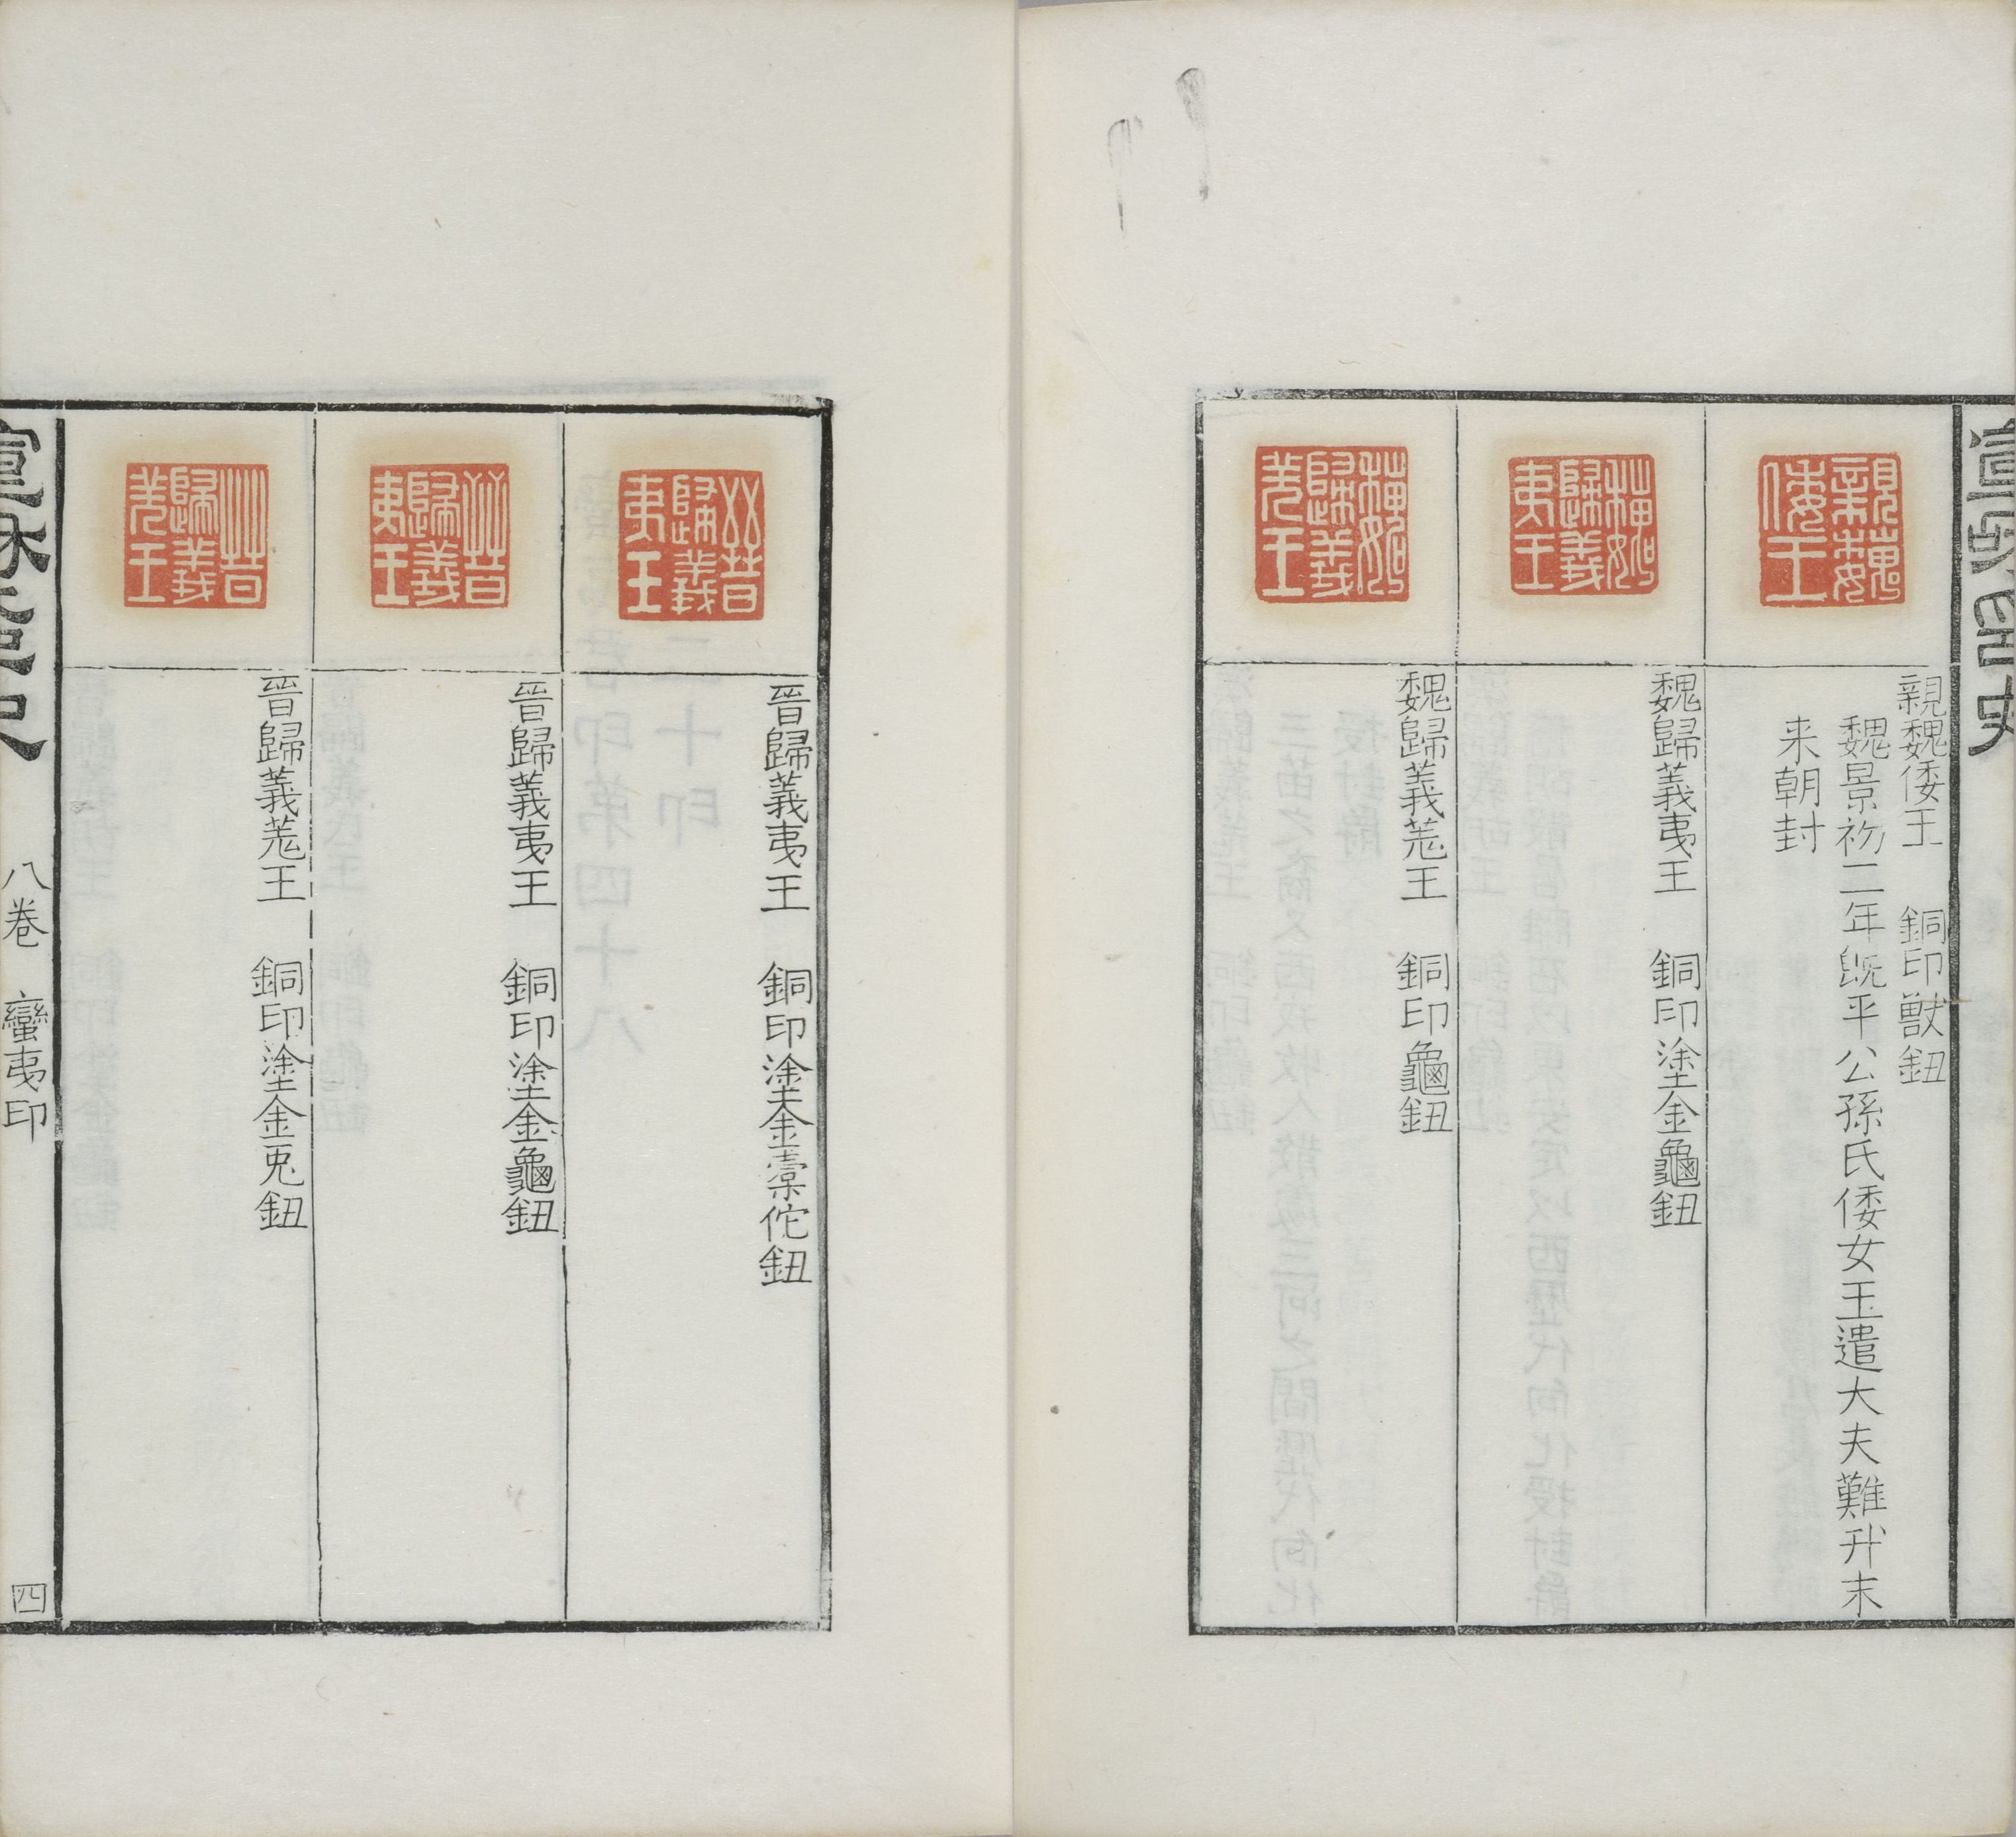 親魏倭王　銅印獣鈕
魏景初二年既平公孫氏倭女王遣大夫難升末
来朝封
魏歸義夷王　銅印塗金龜鈕
魏歸義羌王　銅印龜鈕
晉歸義夷王　銅印塗金橐佗鈕
晉歸義夷王　銅印塗金龜鈕
晉歸義羌王　銅印塗金兎鈕
八卷　蠻夷印
四
親魏倭王
魏歸義夷王
魏歸義羌王
晉歸義夷王
晉歸義夷王
晉歸義羌王